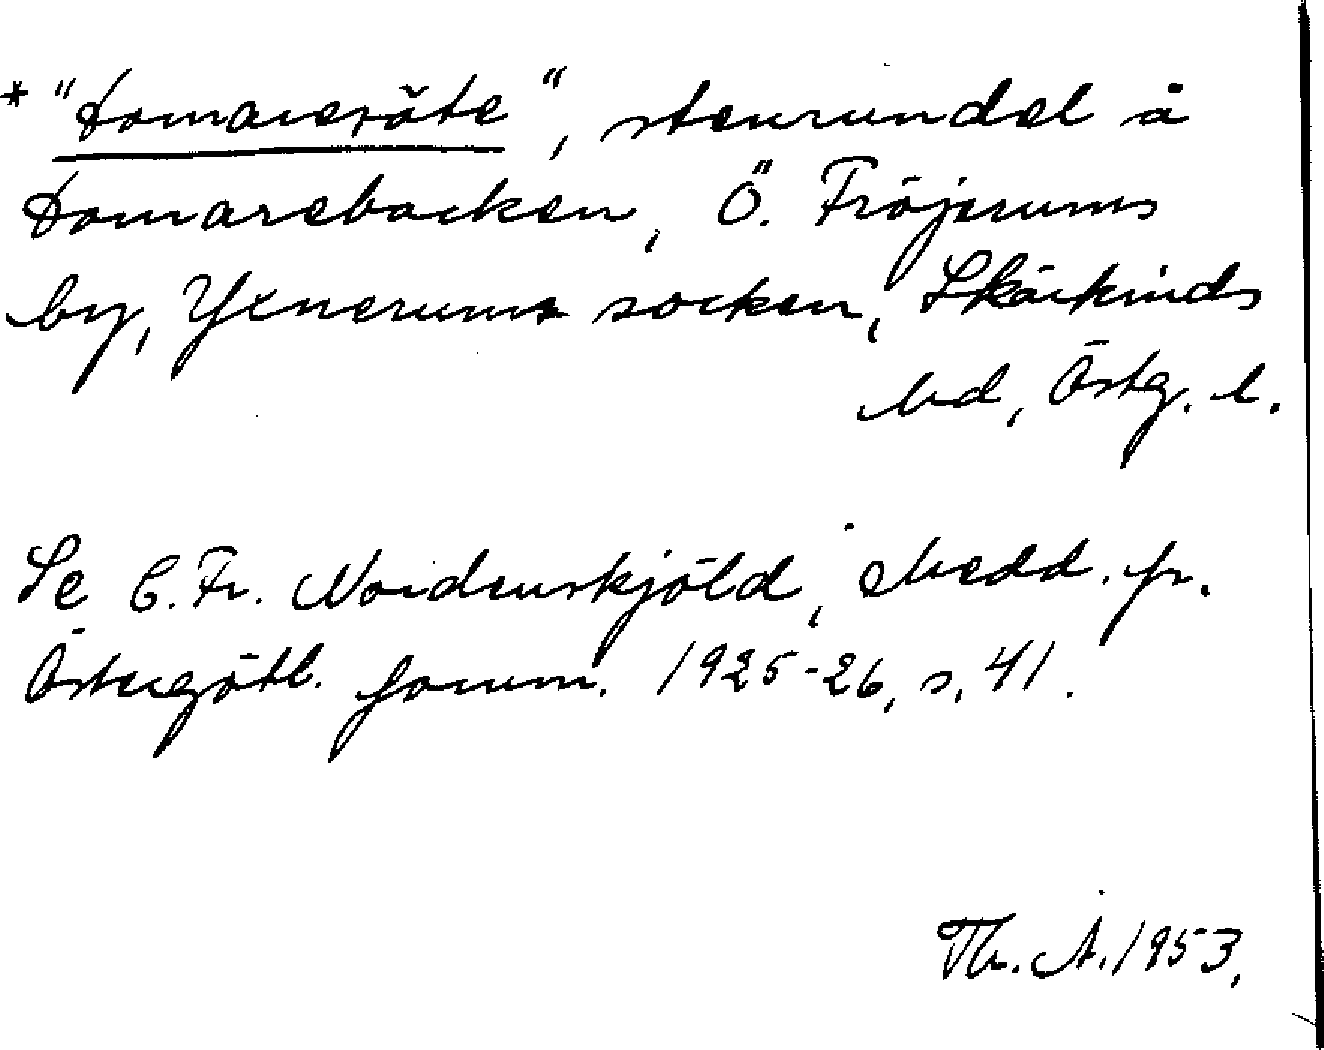 * "Domareräte", stenrundel å
Domarebacken, Ö. Fröjerums
by, Yxnerums socken, Skärkinds
hd, Östg. l.
Se C. Fr. Nordenskjöld, Medd. fr.
Östergötl. fornm. 1925-26, s. 41.
Th. A. 1953.